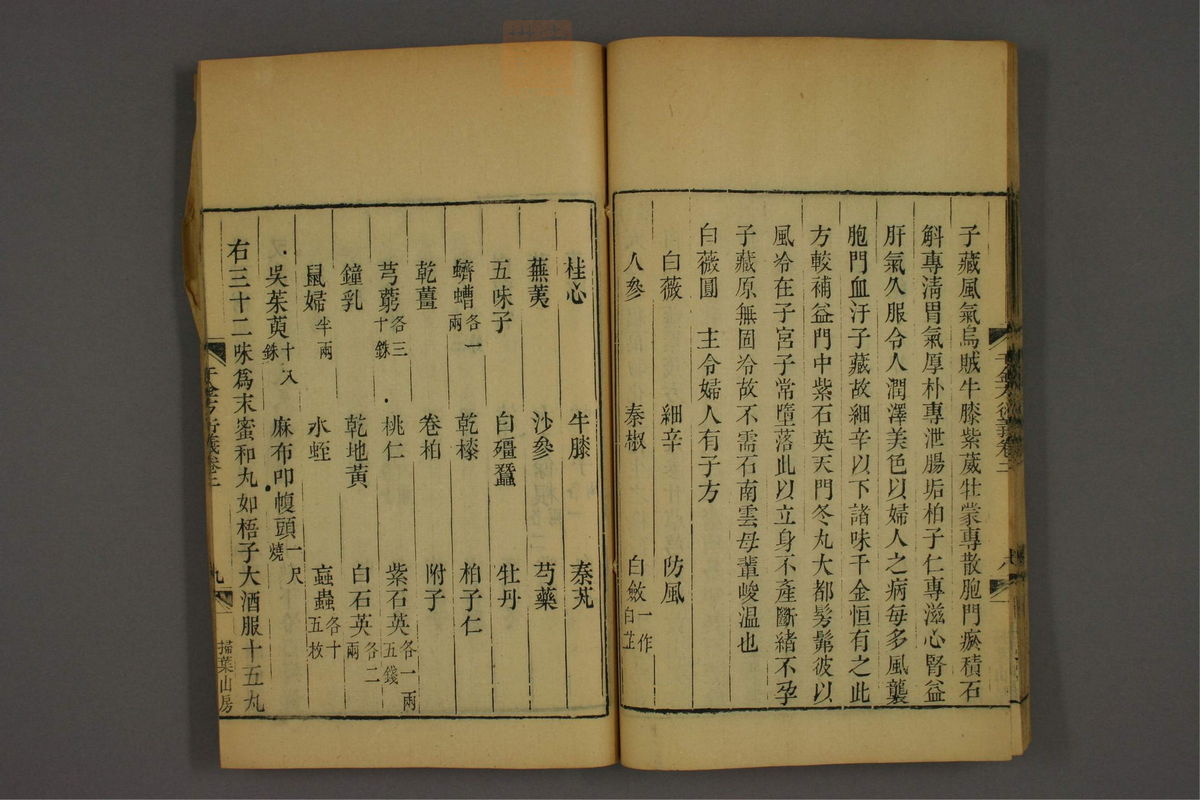 子藏風氣烏賊牛膝紫葳牡蒙專散胞門瘀積石
斛專清胃氣厚朴專泄腸垢柏子仁專滋心腎益
肝氣久服令人潤澤美色以婦人之病每多風襲
胞門血汙子藏故細辛以下諸味千金恒有之此
方較補益門中紫石英天門冬丸大都髣髴彼以
風冷在子宮子常墮落此以立身不產斷緒不孕
子藏原無固冷故不需石南雲母輩峻温也
白薇圓 主令婦人有子方
白薇 細辛 防風
人參 秦椒 白斂一作白芷
桂心 牛膝 秦艽
蕪荑 沙參 芍藥
五味子 白殭蠶 牡丹
蠐螬各一兩 乾漆 柏子仁
乾薑 卷柏 附子
芎藭各三十銖 桃仁 紫石英各一兩五錢
鐘乳 乾地黃 白石英各二兩
鼠婦半兩 水蛭 蝱蟲各十五枚
吳茱萸十八銖 麻布叩㡋頭一尺燒
右三十二味爲末蜜和丸如梧子大酒服十五丸
千金方衍義卷三
九
掃葉山房